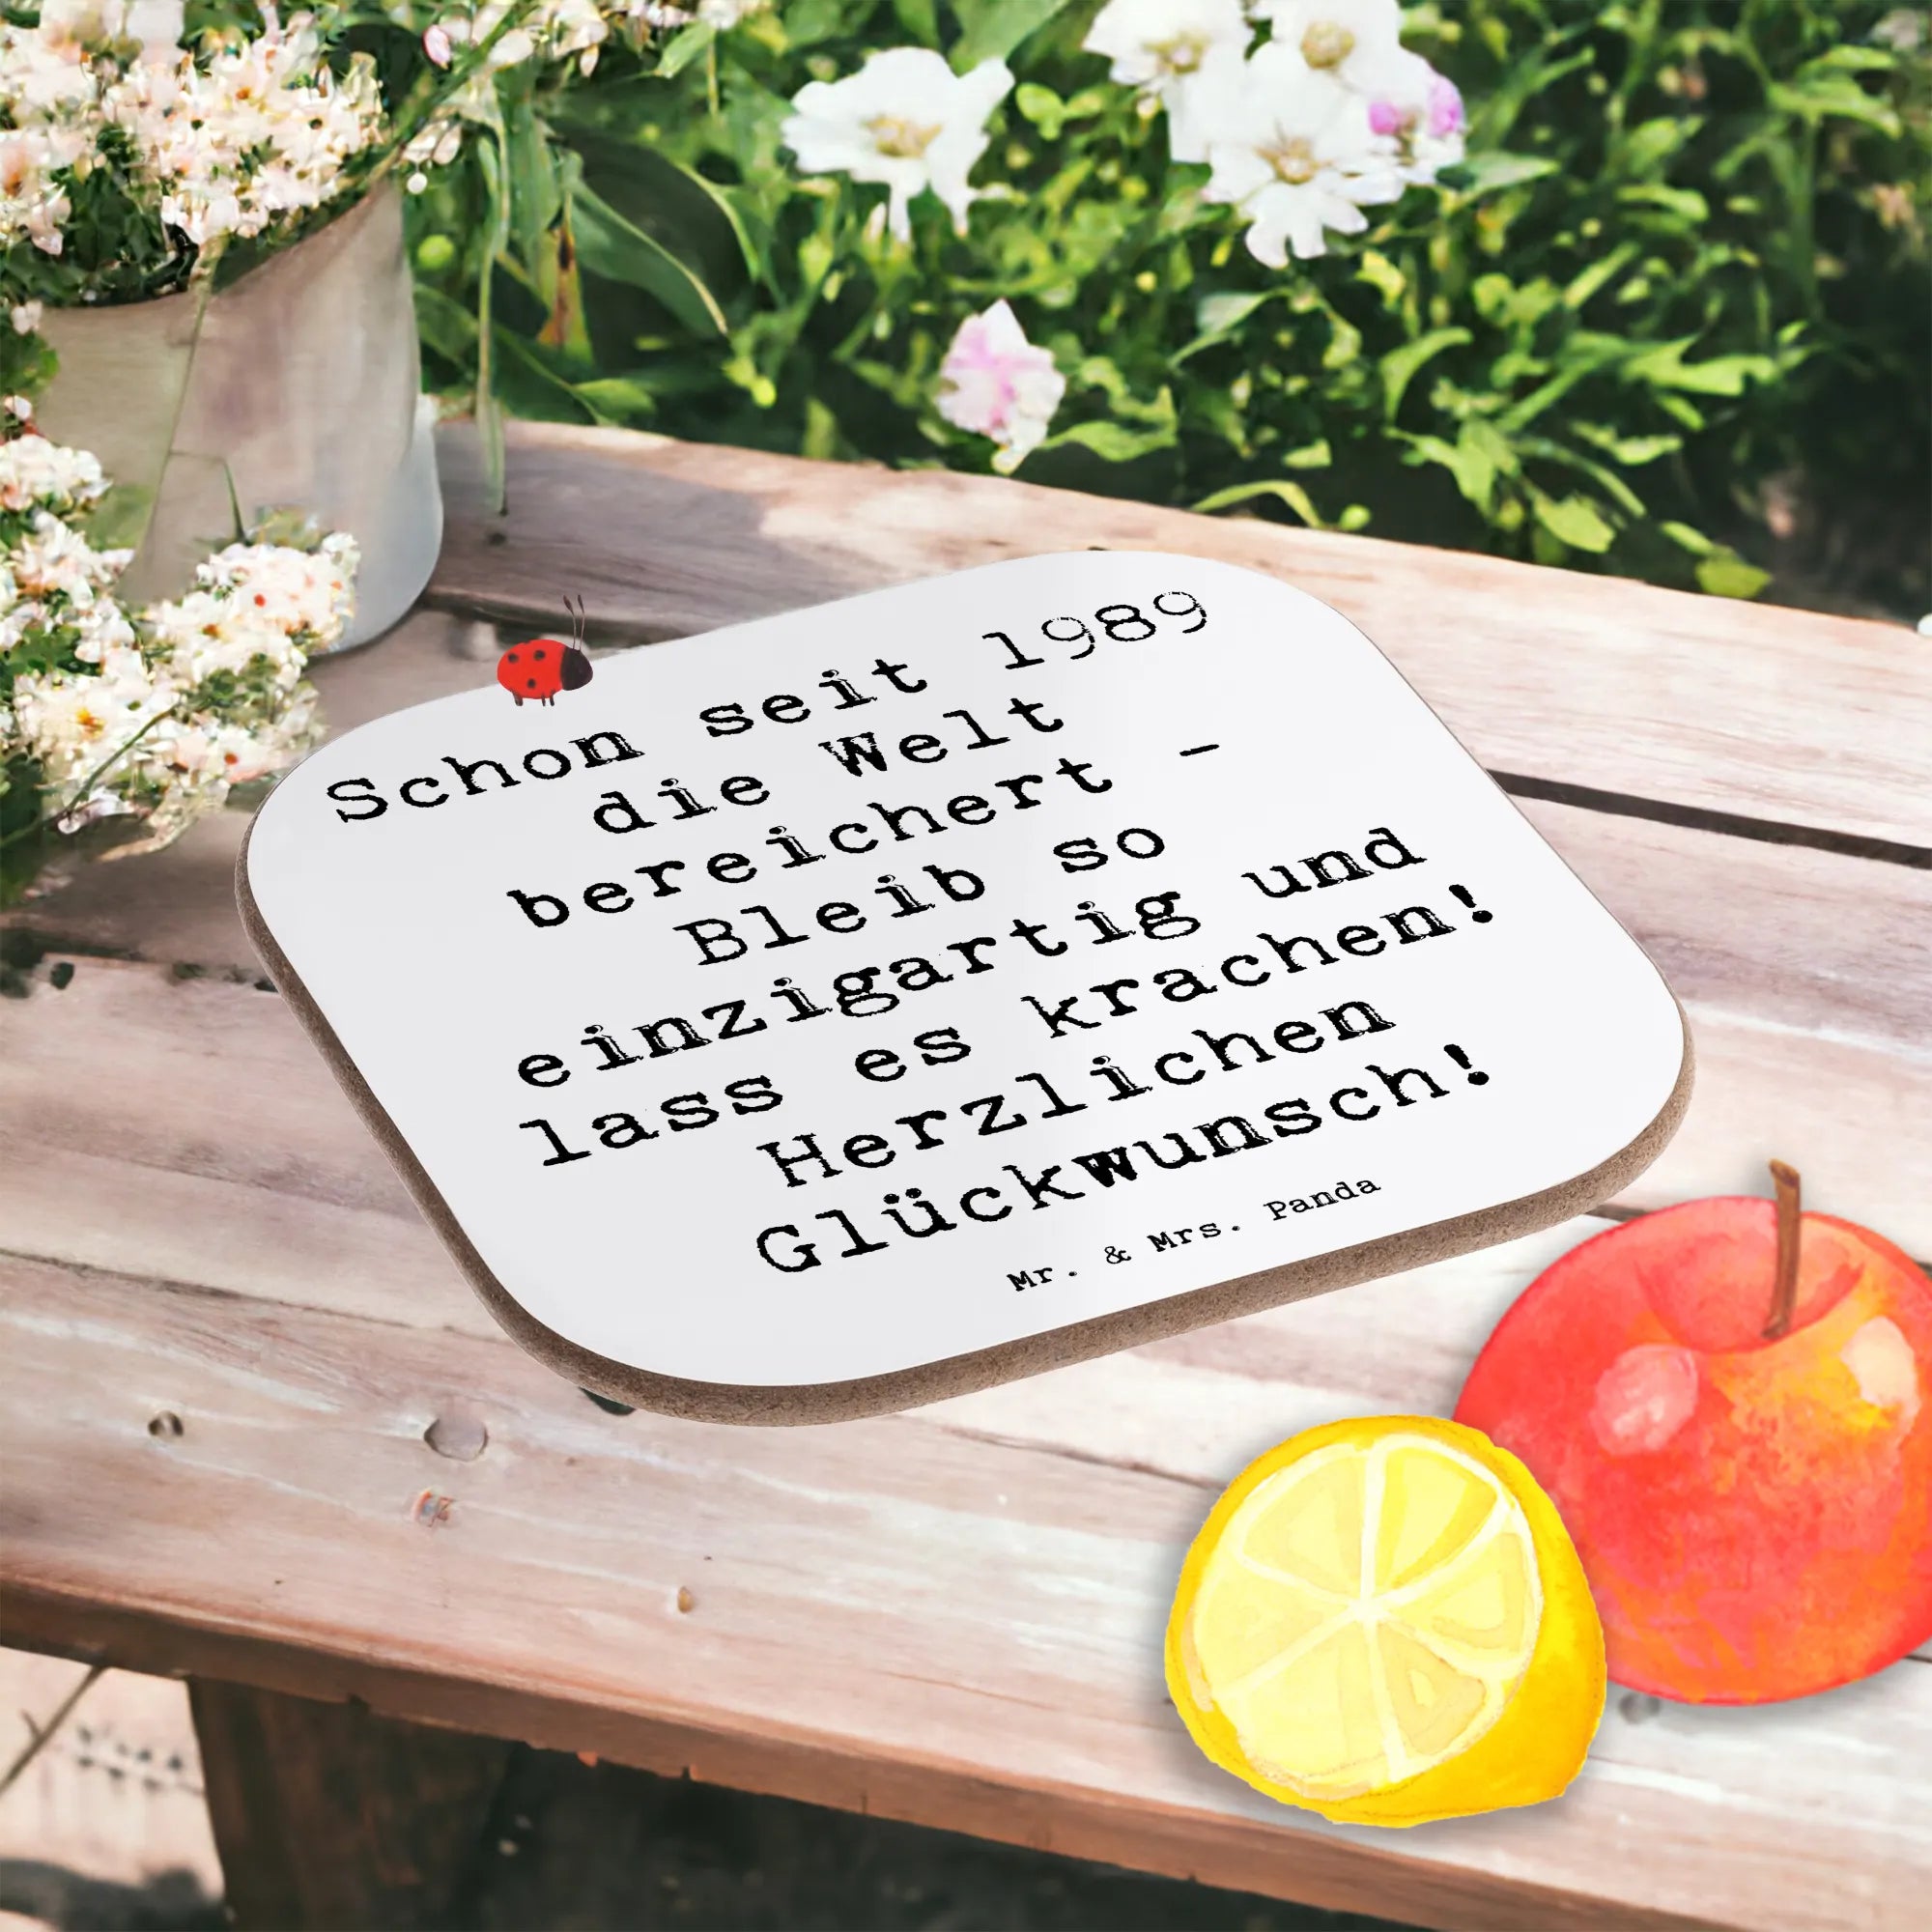 Schon seit 1989
die Welt
bereichert -
Bleib so
einzigartig und
lass es krachen!
Herzlichen
Glückwunsch!
Mr. & Mrs. Panda